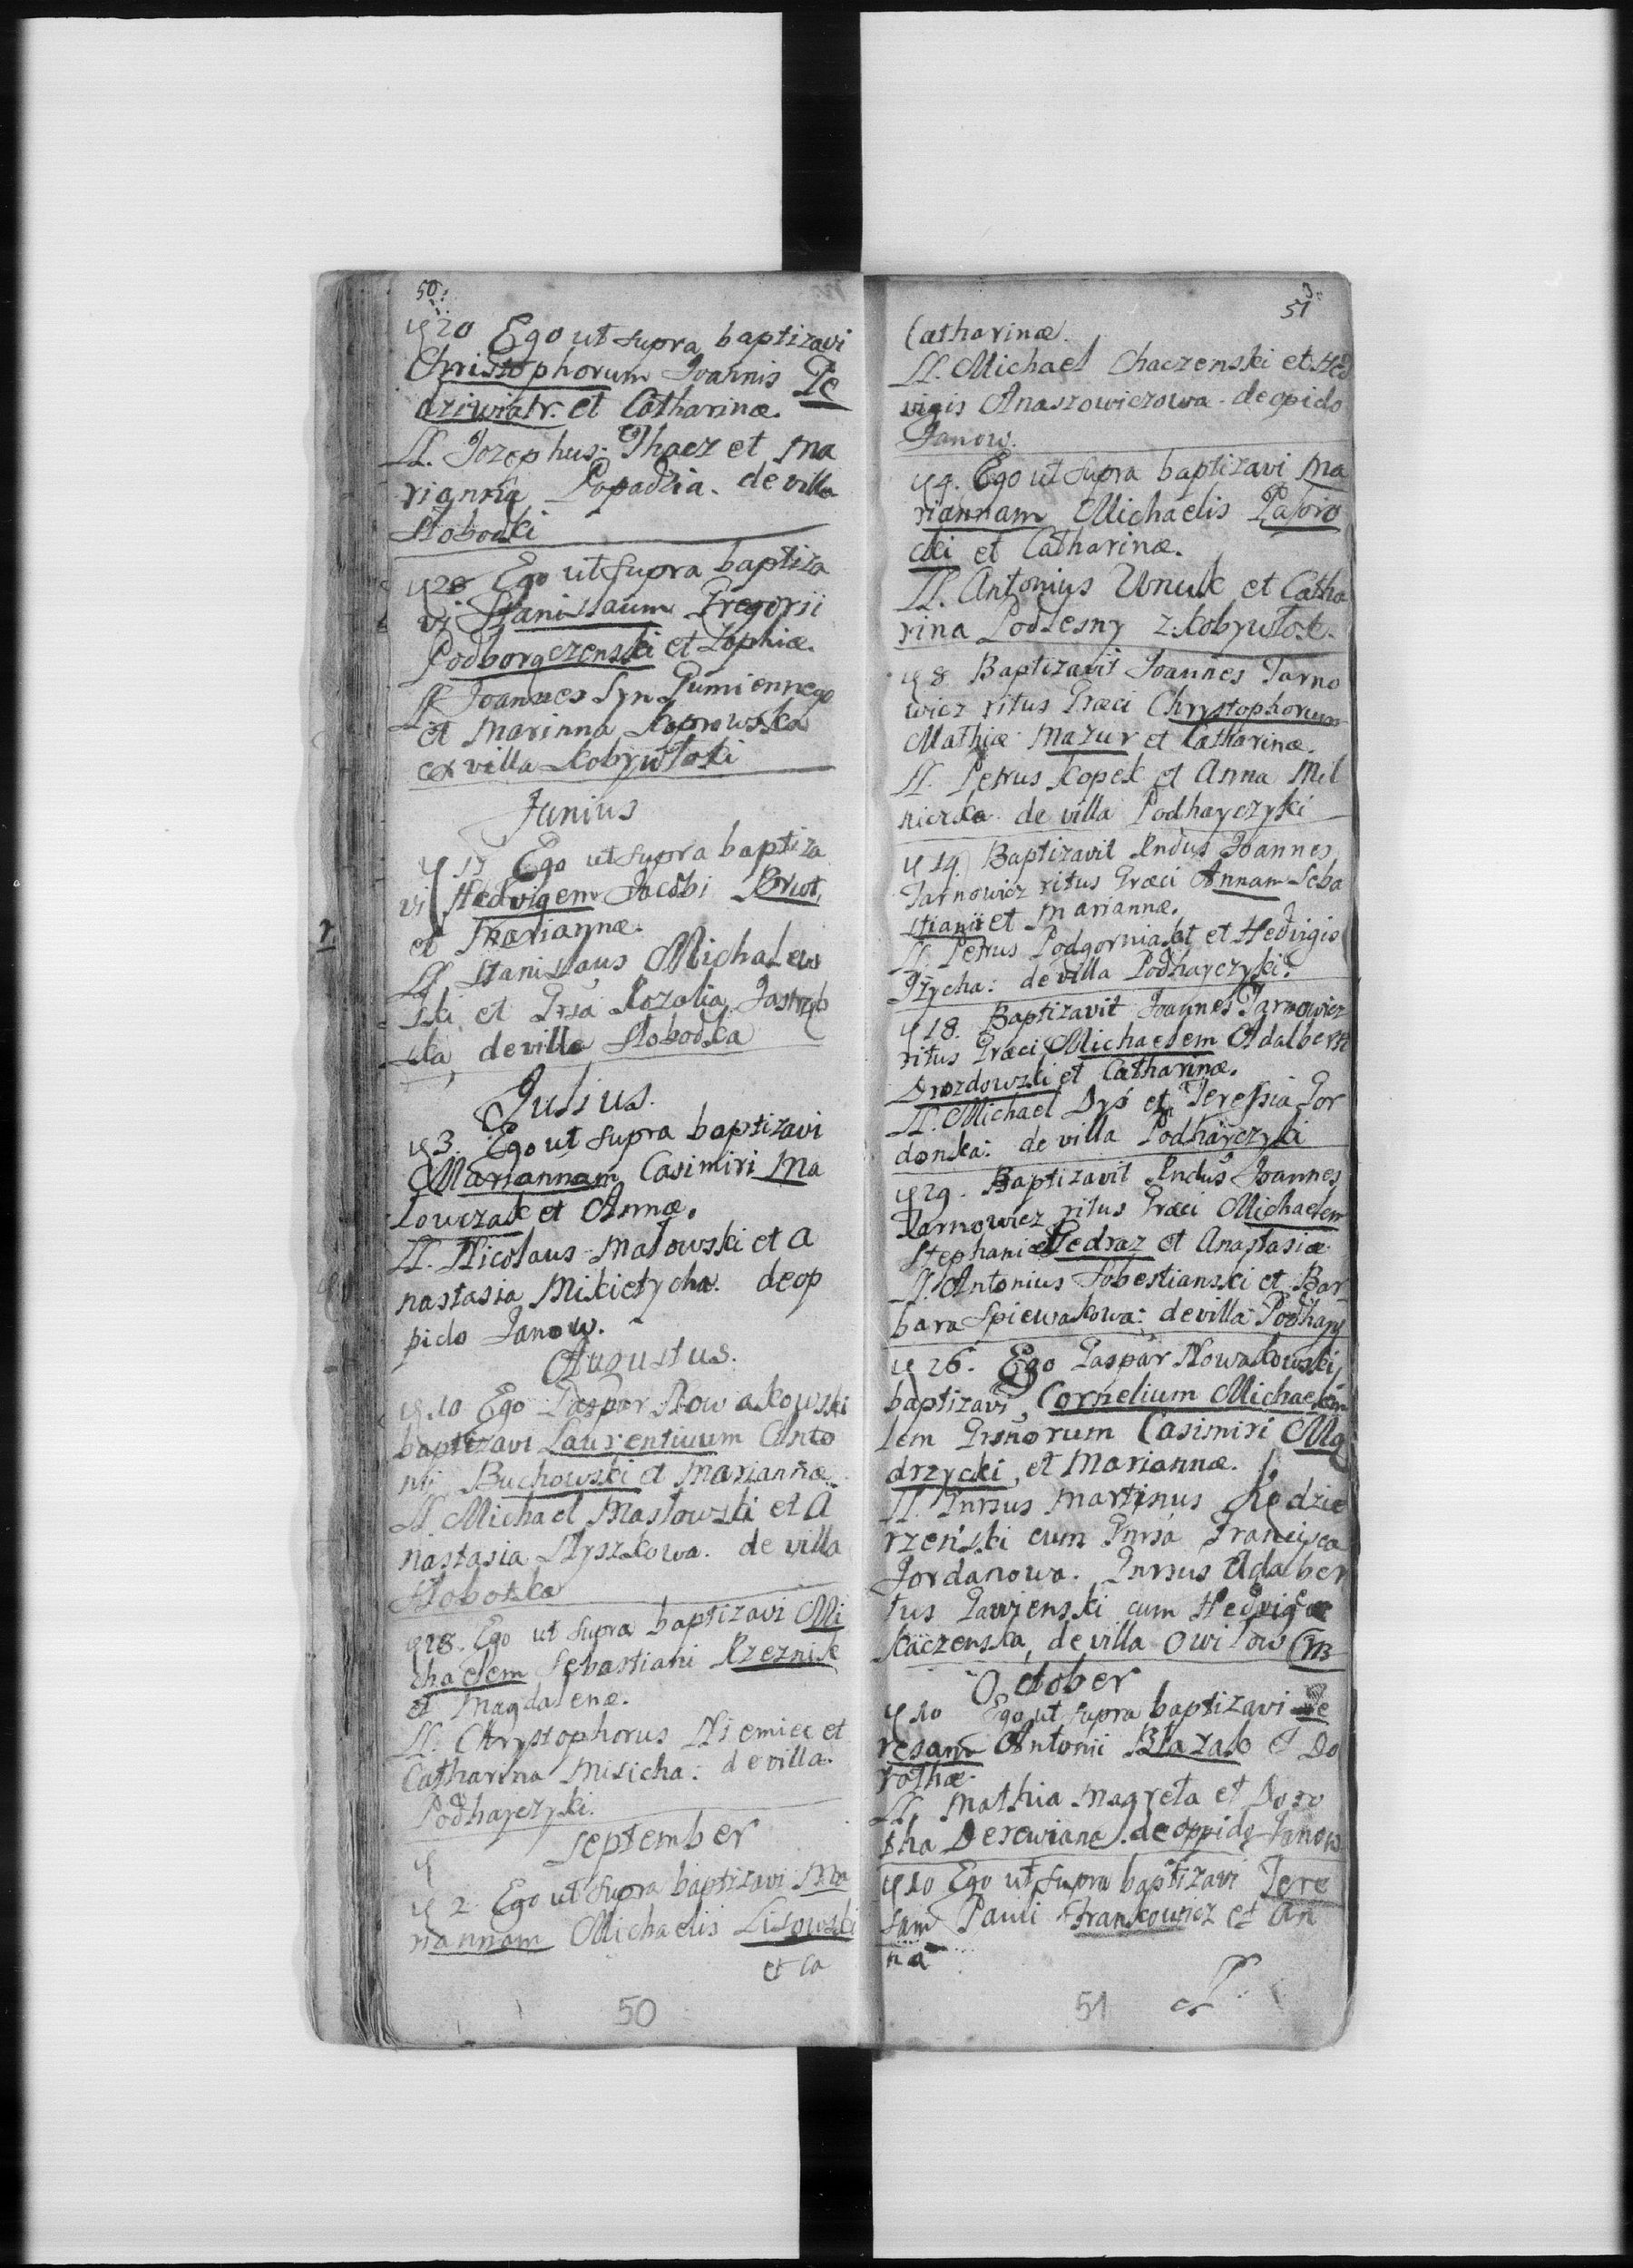 50.
20 Ego ut supra baptizavi
Christophorum Joannis Pe
dziwiatr. et Catharinæ.
LL. Jozephus Thacz et Ma
rianna Popadzia. de villa
Słobodki
28 Ego ut supra baptiza
vi Stanislaum Gregorii
Podborgczenski et Zophiæ.
LL. Joannes Syn Gumiennego
et Marinna Koprowska
ex villa Kobywłoki
Junius
17 Ego ut supra baptiza
vi Hedvigem Jacobi
et Mariannæ.
LL. Stanislaus Michalew
ski et Grsa Rozalia Jastrzęb
ska, de villa Słobodka
Julius.
3. Ego ut supra baptizavi
Mariannam Casimiri Ma
lowczak et Annæ.
LL. Nicolaus Malowski et A
nastasia Mikietycha. de op
pido Janow.
Augustus.
10 Ego Gaspar Nowakowski
baptizavi Laurentium Anto
nii Buchowski et Mariannæ.
LL. Michael Masłowski et A
nastasia Styszkowa. de villa
Słobotka
28. Ego ut supra baptizavi Mi
chaelem Sebastiani Rzeznik
et Magdalenæ.
LL. Chrystophorus Niemiec et
Catharina Misicha: de villa
Podhayczyki.
September
2 Ego ut supra baptizavi Ma
riannam Michaelis Lisowski
et Ca
50
51
Catharinæ.
LL. Michael Chaczenski et Hed
vigis Anaszowiczowa. de opido
Janow.
4. Ego ut supra baptizavi Ma
riannam Michaelis Pasiro
cki et Catharinæ.
LL. Antonius Wnuk et Catha
rina Podlesny z Kobywłok.
8 Baptizavit Joannes Tarno
wicz ritus Græci Chrystophorum
Mathiæ Mazur et Catharinæ.
LL. Petrus Kopek et Anna Mel
niczka. de villa Podhayczyki
14. Baptizavit Rndus Joannes
Tarnowicz ritus Græci Annam Seba
stiani et Mariannæ.
LL. Petrus Podgorniak et Hedvigis
Grzycha: de villa Podhayczyki.
18. Baptizavit Joannes Tarnowicz
ritus Græci Michaelem Adalberti
Drozdowski et Catharinæ.
LL. Michael Dyś et Teressia Gor
donska: de villa Podhayczyki
29. Baptizavit Rndus Joannes
Tarnowicz ritus Græci Michaelem
Stephani Pedraz et Anastasiæ
LL. Antonius Sobestianski et Bar
bara Spiewakowa: de villa Podhay
26. Ego Gaspar Nowakowski
baptizavi Cornelium Michae
lem Grsnorum Casimiri Mą
drzycki, et Mariannæ.
LL. Gnrsus Martinus Kędzie
rzeński cum Gnrsa Francisca
Jordanowa. Gnrsus Adalber
tus Gawienski cum Hedvige
Kaczenska, de villa Owitow
October
10 Ego ut supra baptizavi Te
resam Antonii Błazak et Do
rothæ.
LL. Mathia Magreta et Doro
tha Derewiana. de oppido Janow
10 Ego ut supra baptizavi Tere
sam Pauli Frankowicz et An
na
51